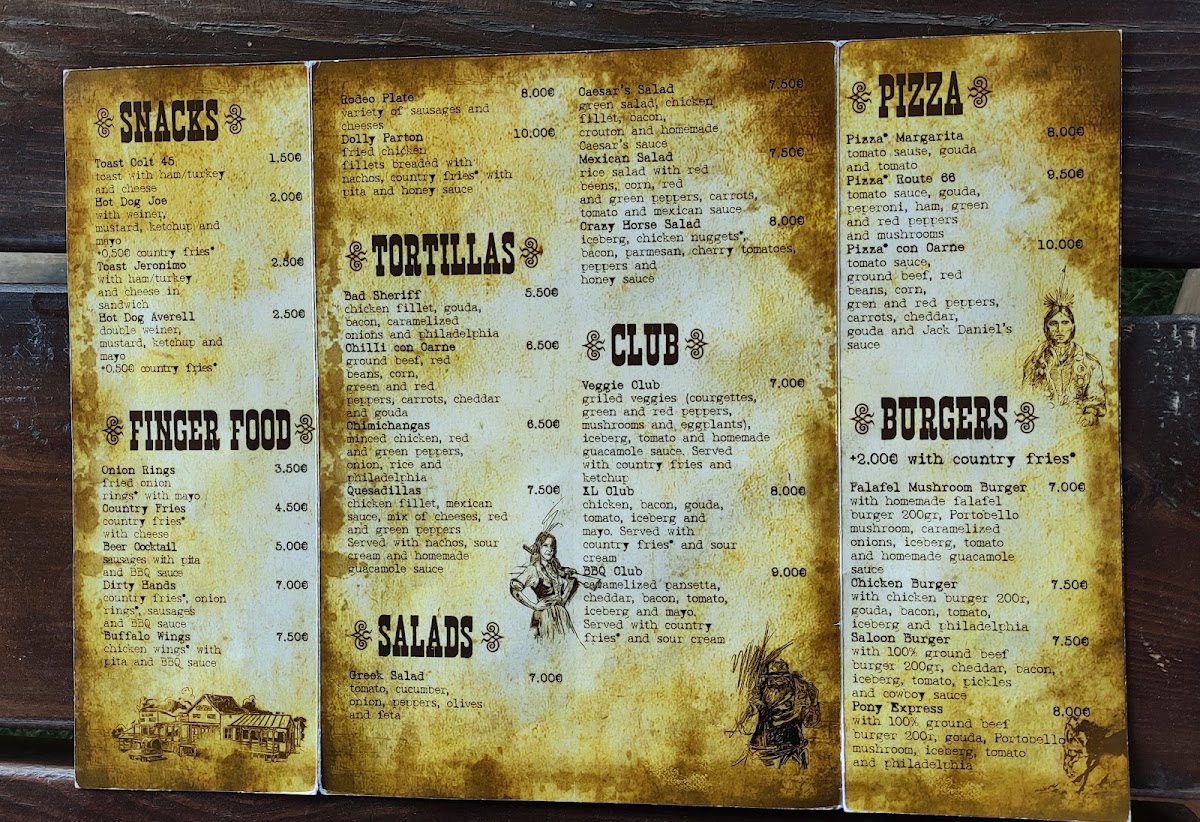 SNACKS
Toast Colt 45 1,50€
toast with ham/turkey
and cheese
Hot Dog Joe 2.00€
with weiner,
mustard, ketchup and
mayo
+0,50€ country fries*
Toast Jeronimo 2.50€
with ham/turkey
and cheese in
sandwich
Hot Dog Averell 2.50€
double weiner,
mustard, ketchup and
mayo
+0,50€ country fries*
FINGER FOOD
Onion Rings 3.50€
fried onion
rings* with mayo
Country Fries 4.50€
country fries*
with cheese
Beer Cocktail 5.00€
sausages with pita
and BBQ sauce
Dirty Hands 7.00€
country fries*, onion
rings*, sausages
and BBQ sauce
Buffalo Wings 7.50€
chicken wings* with
pita and BBQ sauce
Rodeo Plate 8.00€
variety of sausages and
cheeses
Dolly Parton 10.00€
fried chicken
fillets breaded with
nachos, country fries* with
pita and honey sauce
TORTILLAS
Bad Sheriff 5.50€
chicken fillet, gouda,
bacon, caramelized
onions and philadelphia
Chilli con Carne 6.50€
ground beef, red
beans, corn,
green and red
peppers, carrots, cheddar
and gouda
Chimichangas 6.50€
minced chicken, red
and green peppers,
onion, rice and
philadelphia
Quesadillas 7.50€
chicken fillet, mexican
sauce, mix of cheeses, red
and green peppers
Served with nachos, sour
cream and homemade
guacamole sauce
SALADS
Greek Salad 7.00€
tomato, cucumber,
onion, peppers, olives
and feta
Caesar's Salad 7.50€
green salad, chicken
fillet, bacon,
crouton and homemade
Caesar's sauce
Mexican Salad 7.50€
rice salad with red
beens, corn, red
and green peppers, carrots,
tomato and mexican sauce
Crazy Horse Salad 8.00€
iceberg, chicken nuggets*,
bacon, parmesan, cherry tomatoes,
peppers and
honey sauce
CLUB
Veggie Club 7.00€
griled veggies (courgettes,
green and red peppers,
mushrooms and eggplants),
iceberg, tomato and homemade
guacamole sauce. Served
with country fries and
ketchup
XL Club 8.00€
chicken, bacon, gouda,
tomato, iceberg and
mayo. Served with
country fries* and sour
cream
BBQ Club 9.00€
caramelized pansetta,
cheddar, bacon, tomato,
iceberg and mayo.
Served with country
fries* and sour cream
PIZZA
Pizza* Margarita 8.00€
tomato sause, gouda
and tomato
Pizza* Route 66 9.50€
tomato sauce, gouda,
peperoni, ham, green
and red peppers
and mushrooms
Pizza* con Carne 10.00€
tomato sauce,
ground beef, red
beans, corn,
gren and red peppers,
carrots, cheddar,
gouda and Jack Daniel's
sauce
BURGERS
+2.00€ with country fries*
Falafel Mushroom Burger 7.00€
with homemade falafel
burger 200gr, Portobello
mushroom, caramelized
onions, iceberg, tomato
and homemade guacamole
sauce
Chicken Burger 7.50€
with chicken burger 200r,
gouda, bacon, tomato,
iceberg and philadelphia
Saloon Burger 7.50€
with 100% ground beef
burger 200gr, cheddar, bacon,
iceberg, tomato, pickles
and cowboy sauce
Pony Express 8.00€
with 100% ground beef
burger 200r, gouda, Portobello
mushroom, iceberg, tomato
and philadelphia